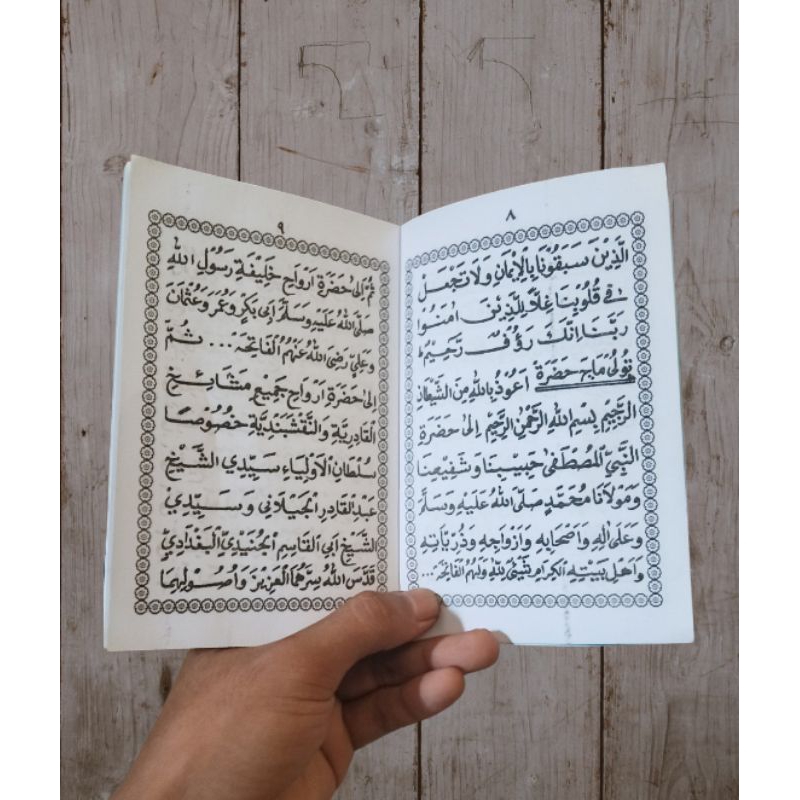 ٨
الَّذِيْنَ سَبَقُوْنَا بِالْاِيْمَانِ وَلَا تَجْعَلْ
فِى قُلُوْبِنَا غِلًّا لِلَّذِيْنَ اٰمَنُوْا
رَبَّنَا اِنَّكَ رَؤُوْفٌ رَحِيْمٌ
تولى ماج حَضَرَةْ اَعُوْذُ بِاللهِ مِنَ الشَّيْطَانِ
الرَّجِيْمِ بِسْمِ اللهِ الرَّحْمٰنِ الرَّحِيْمِ اِلىٰ حَضْرَةِ
النَّبِيِّ الْمُصْطَفىٰ حَبِيْبِنَا وَشَفِيْعِنَا
وَمَوْلَانَا مُحَمَّدٍ صَلَّى اللهُ عَلَيْهِ وَسَلَّمَ
وَعَلىٰ اٰلِهِ وَاَصْحَابِهِ وَاَزْوَاجِهِ وَذُرِّيَّاتِهِ
وَاَهْلِ بَيْتِهِ الْكِرَامِ شَيْئٌ لِلّٰهِ وَلَهُمُ الْفَاتِحَةْ...
٩
ثُمَّ اِلىٰ حَضْرَةِ اَرْوَاحِ خَلِيْفَةِ رَسُوْلِ اللهِ
صَلَّى اللهُ عَلَيْهِ وَسَلَّمَ اَبِى بَكْرٍ وَعُمَرَ وَعُثْمَانَ
وَعَلِيّ رَضِىَ اللهُ عَنْهُمُ الْفَاتِحَةْ... ثُمَّ
اِلىٰ حَضْرَةِ اَرْوَاحِ جَمِيْعِ مَشَائِخِ
الْقَادِرِيَّةِ وَالنَّقْشَبَنْدِيَّةِ خُصُوْصًا
سُلْطَانِ الْاَوْلِيَاءِ سَيِّدِي الشَّيْخِ
عَبْدِ الْقَادِرِ الْجَيْلَانِي وَسَيِّدِيْ
الشَّيْخِ اَبِي الْقَاسِمِ الْجُنَيْدِيِّ الْبَغْدَادِيِّ
قَدَّسَ اللهُ سِرَّهُمَا الْعَزِيْزَ وَاُصُوْلِهِمَا